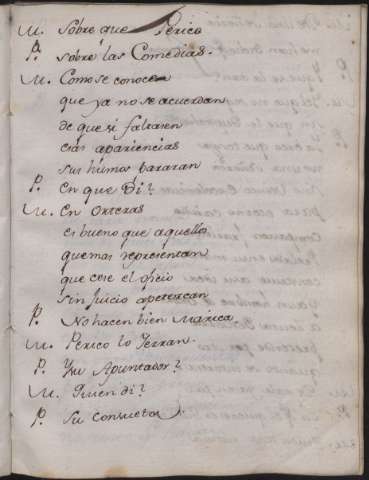 M. Sobre que Perico
P. sobre las Comedias.
M. Como se conoce
que ya no se acuerdan
de que si faltaren
esas apariencias
sus humos pararan
P. En que Di?
M. En Orteras
es bueno que aquellos
que mas representan
que cese el oficio
sin juicio apetezcan
P. No hacen bien Marica
M. Perico lo Yerran.
P. Ysu Apuntador?
M. Quien di?
P. Su Consueta